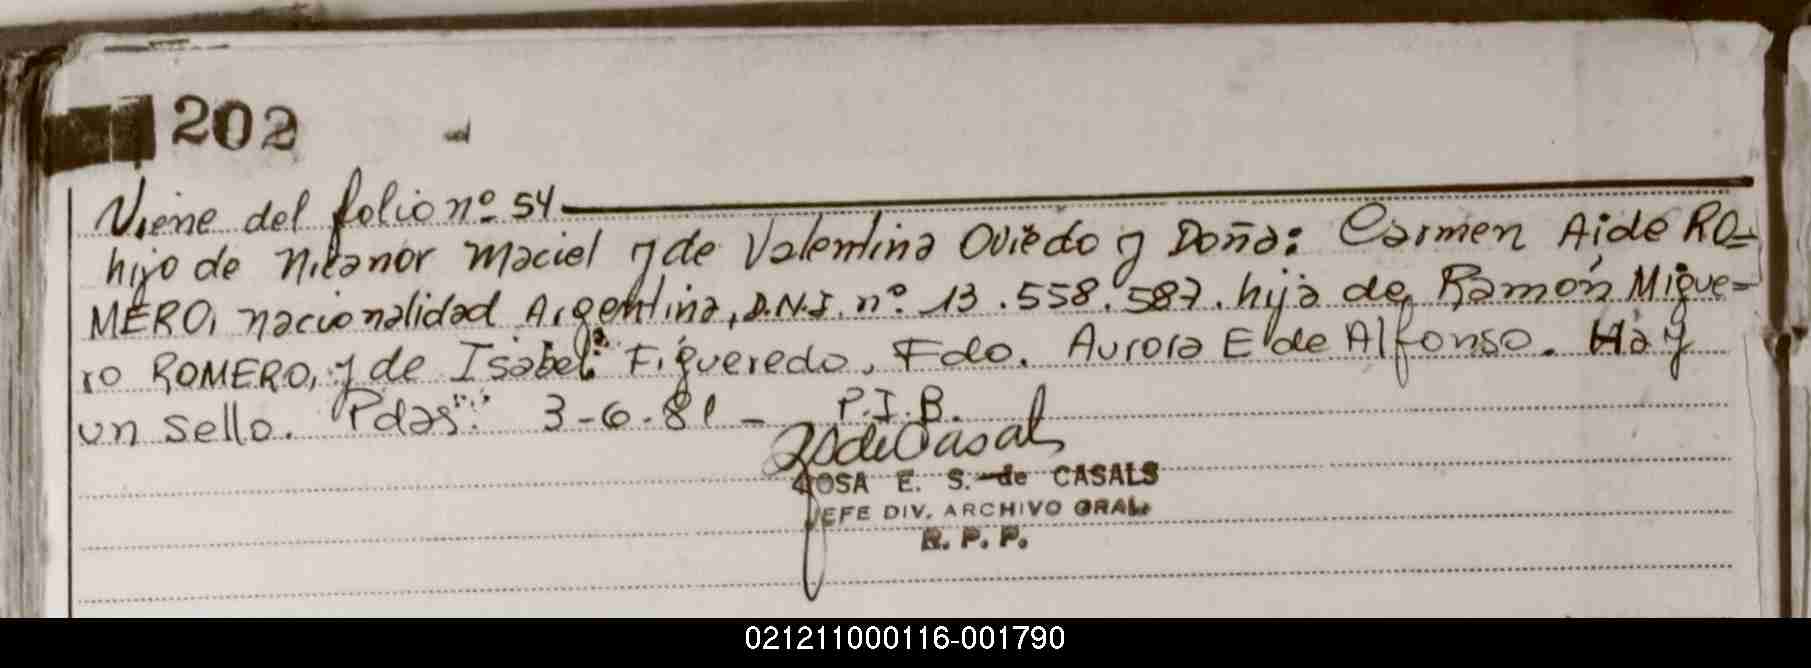 202
Viene del folio nº 54
hijo de Nicanor Maciel y de Valentina Oviedo y Doña: Carmen Aide RO=
MERO, nacionalidad Argentina, D.N.I. nº 13.558.587. hija de Ramón Migue=
ro ROMERO, y de Isabel Figueredo, Fdo. Aurora E de Alfonso. Hay
un sello. Pdas: 3-6-81- P.I.B.
R S de Casals
ROSA E. S. de CASALS
JEFE DIV. ARCHIVO GRAL.
R. P. P.
021211000116-001790